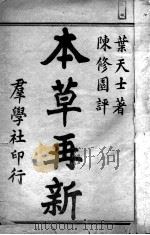 葉天士著
陳修園評
本草再新
羣學社印行